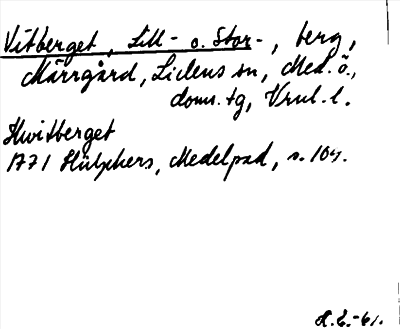 Vitberget, Lill- o. Stor-, berg,
Märrgård, Lidens sn, Med. ö.,
doms. tg, Vnul. l.
Hwitberget
1771 Hülphers, Medelpad, s. 104.
H. E. -61.